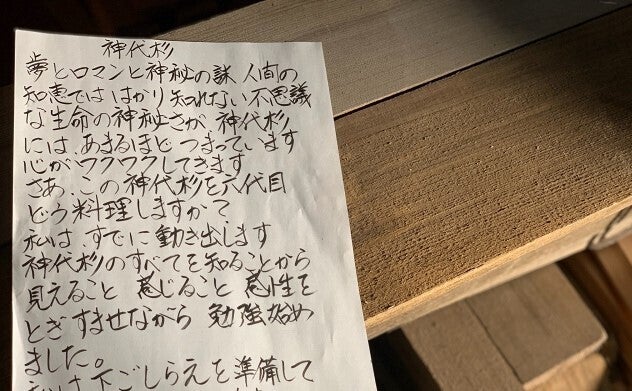 神代杉
夢とロマンと神秘の謎 人間の
知恵では はかり知れない不思議
な生命の神秘さが 神代杉
には、あまるほど つまっています
心がワクワクしてきます
さあ、この神代杉を六代目
どう料理しますか?
私は、すでに動き出します
神代杉のすべてを知ることから
見えること 感じること 感性を
とぎすませながら 勉強始め
ました。
下ごしらえを準備して